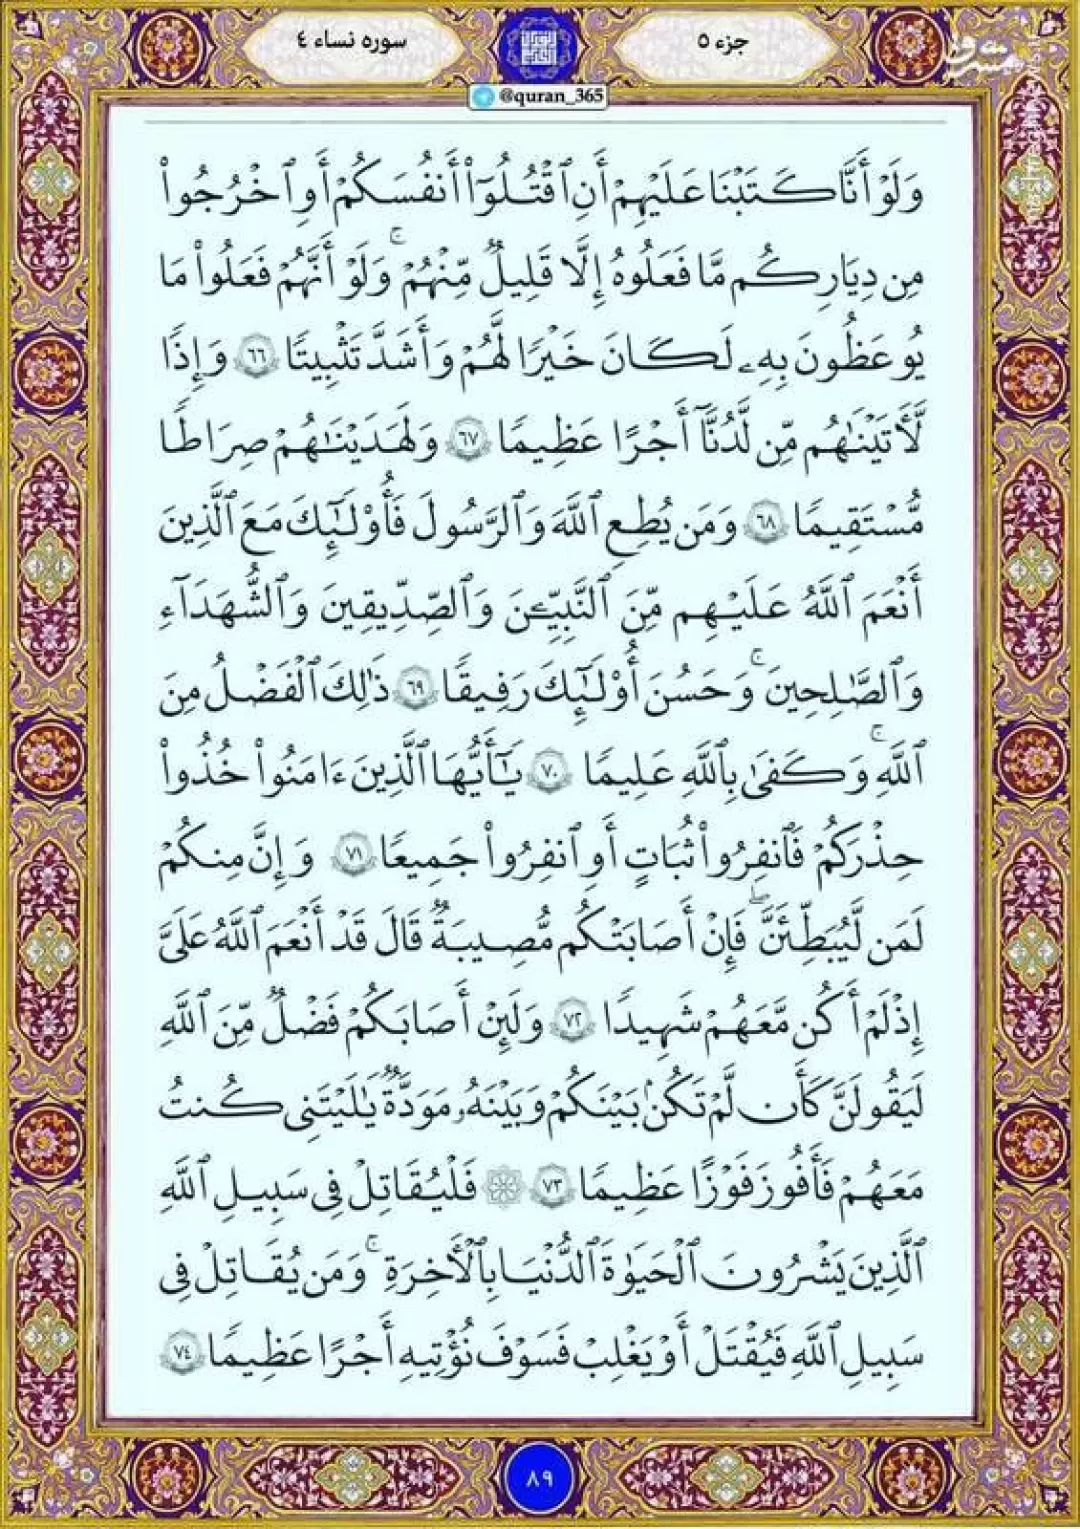 جزء ٥
سوره نساء ٤
@quran_365
مشرق
mashreghnews
وَلَوْ أَنَّا كَتَبْنَا عَلَيْهِمْ أَنِ ٱقْتُلُوٓا۟ أَنفُسَكُمْ أَوِ ٱخْرُجُوا۟
مِن دِيَٰرِكُم مَّا فَعَلُوهُ إِلَّا قَلِيلٌ مِّنْهُمْ ۚ وَلَوْ أَنَّهُمْ فَعَلُوا۟ مَا
يُوعَظُونَ بِهِۦ لَكَانَ خَيْرًا لَّهُمْ وَأَشَدَّ تَثْبِيتًا ٦٦ وَإِذًا
لَّءَاتَيْنَٰهُم مِّن لَّدُنَّآ أَجْرًا عَظِيمًا ٦٧ وَلَهَدَيْنَٰهُمْ صِرَٰطًا
مُّسْتَقِيمًا ٦٨ وَمَن يُطِعِ ٱللَّهَ وَٱلرَّسُولَ فَأُو۟لَٰٓئِكَ مَعَ ٱلَّذِينَ
أَنْعَمَ ٱللَّهُ عَلَيْهِم مِّنَ ٱلنَّبِيِّـۧنَ وَٱلصِّدِّيقِينَ وَٱلشُّهَدَآءِ
وَٱلصَّٰلِحِينَ ۚ وَحَسُنَ أُو۟لَٰٓئِكَ رَفِيقًا ٦٩ ذَٰلِكَ ٱلْفَضْلُ مِنَ
ٱللَّهِ ۚ وَكَفَىٰ بِٱللَّهِ عَلِيمًا ٧٠ يَٰٓأَيُّهَا ٱلَّذِينَ ءَامَنُوا۟ خُذُوا۟
حِذْرَكُمْ فَٱنفِرُوا۟ ثُبَاتٍ أَوِ ٱنفِرُوا۟ جَمِيعًا ٧١ وَإِنَّ مِنكُمْ
لَمَن لَّيُبَطِّئَنَّ ۖ فَإِنْ أَصَٰبَتْكُم مُّصِيبَةٌ قَالَ قَدْ أَنْعَمَ ٱللَّهُ عَلَىَّ
إِذْ لَمْ أَكُن مَّعَهُمْ شَهِيدًا ٧٢ وَلَئِنْ أَصَٰبَكُمْ فَضْلٌ مِّنَ ٱللَّهِ
لَيَقُولَنَّ كَأَن لَّمْ تَكُنۢ بَيْنَكُمْ وَبَيْنَهُۥ مَوَدَّةٌ يَٰلَيْتَنِى كُنتُ
مَعَهُمْ فَأَفُوزَ فَوْزًا عَظِيمًا ٧٣ ۞ فَلْيُقَٰتِلْ فِى سَبِيلِ ٱللَّهِ
ٱلَّذِينَ يَشْرُونَ ٱلْحَيَوٰةَ ٱلدُّنْيَا بِٱلْءَاخِرَةِ ۚ وَمَن يُقَٰتِلْ فِى
سَبِيلِ ٱللَّهِ فَيُقْتَلْ أَوْ يَغْلِبْ فَسَوْفَ نُؤْتِيهِ أَجْرًا عَظِيمًا ٧٤
٨٩